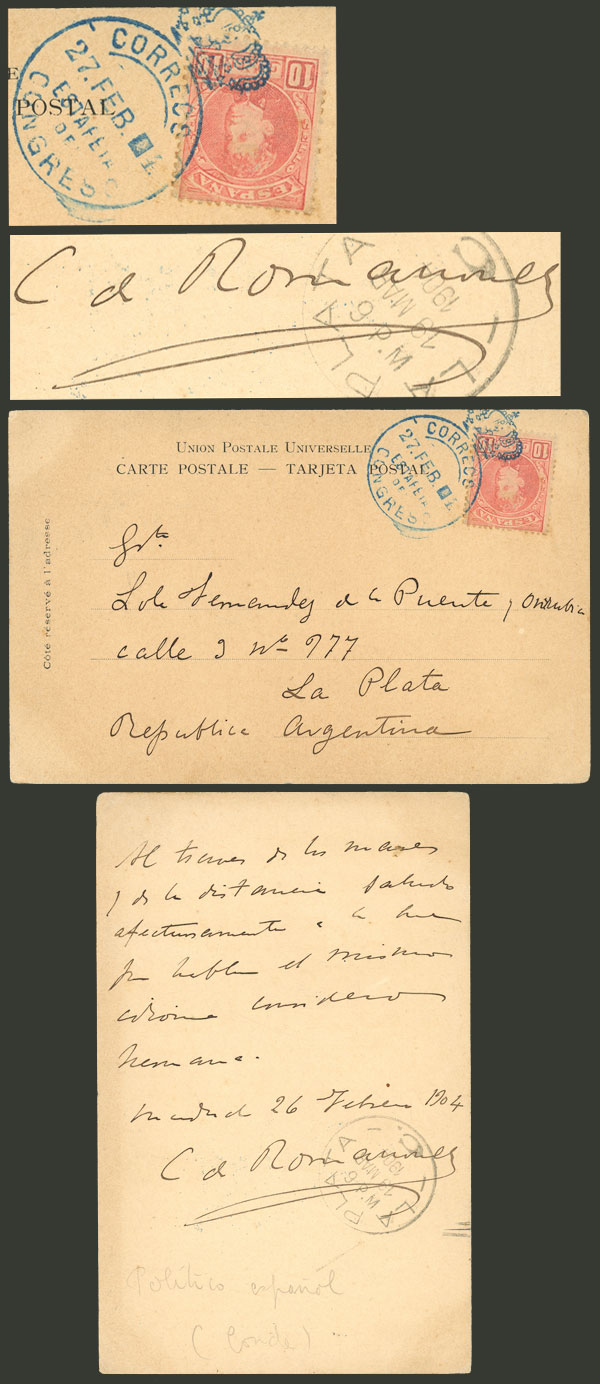 CORREOS
27.FEB.04
ESTAFETA
DE
CONGRESO
POSTAL
10
ESPAÑA
C de Romanones
LA PLATA
19 MAR
6 P.M
UNION POSTALE UNIVERSELLE
CARTE POSTALE — TARJETA POSTAL
CORREOS
27.FEB.04
ESTAFETA
DE
CONGRESO
10
ESPAÑA
Côté réservé à l'adresse
Srta
Lola Fernandez de la Puente y
calle 9 Nº 777
La Plata
Republica Argentina
Al traves de los mares
y de la distancia saludo
afectuosamente a la que
por hablar el mismo
idioma considero
hermana.
Madrid 26 Febrero 1904
C de Romanones
LA PLATA
19 MAR
6 P.M
Político español
(Conde)